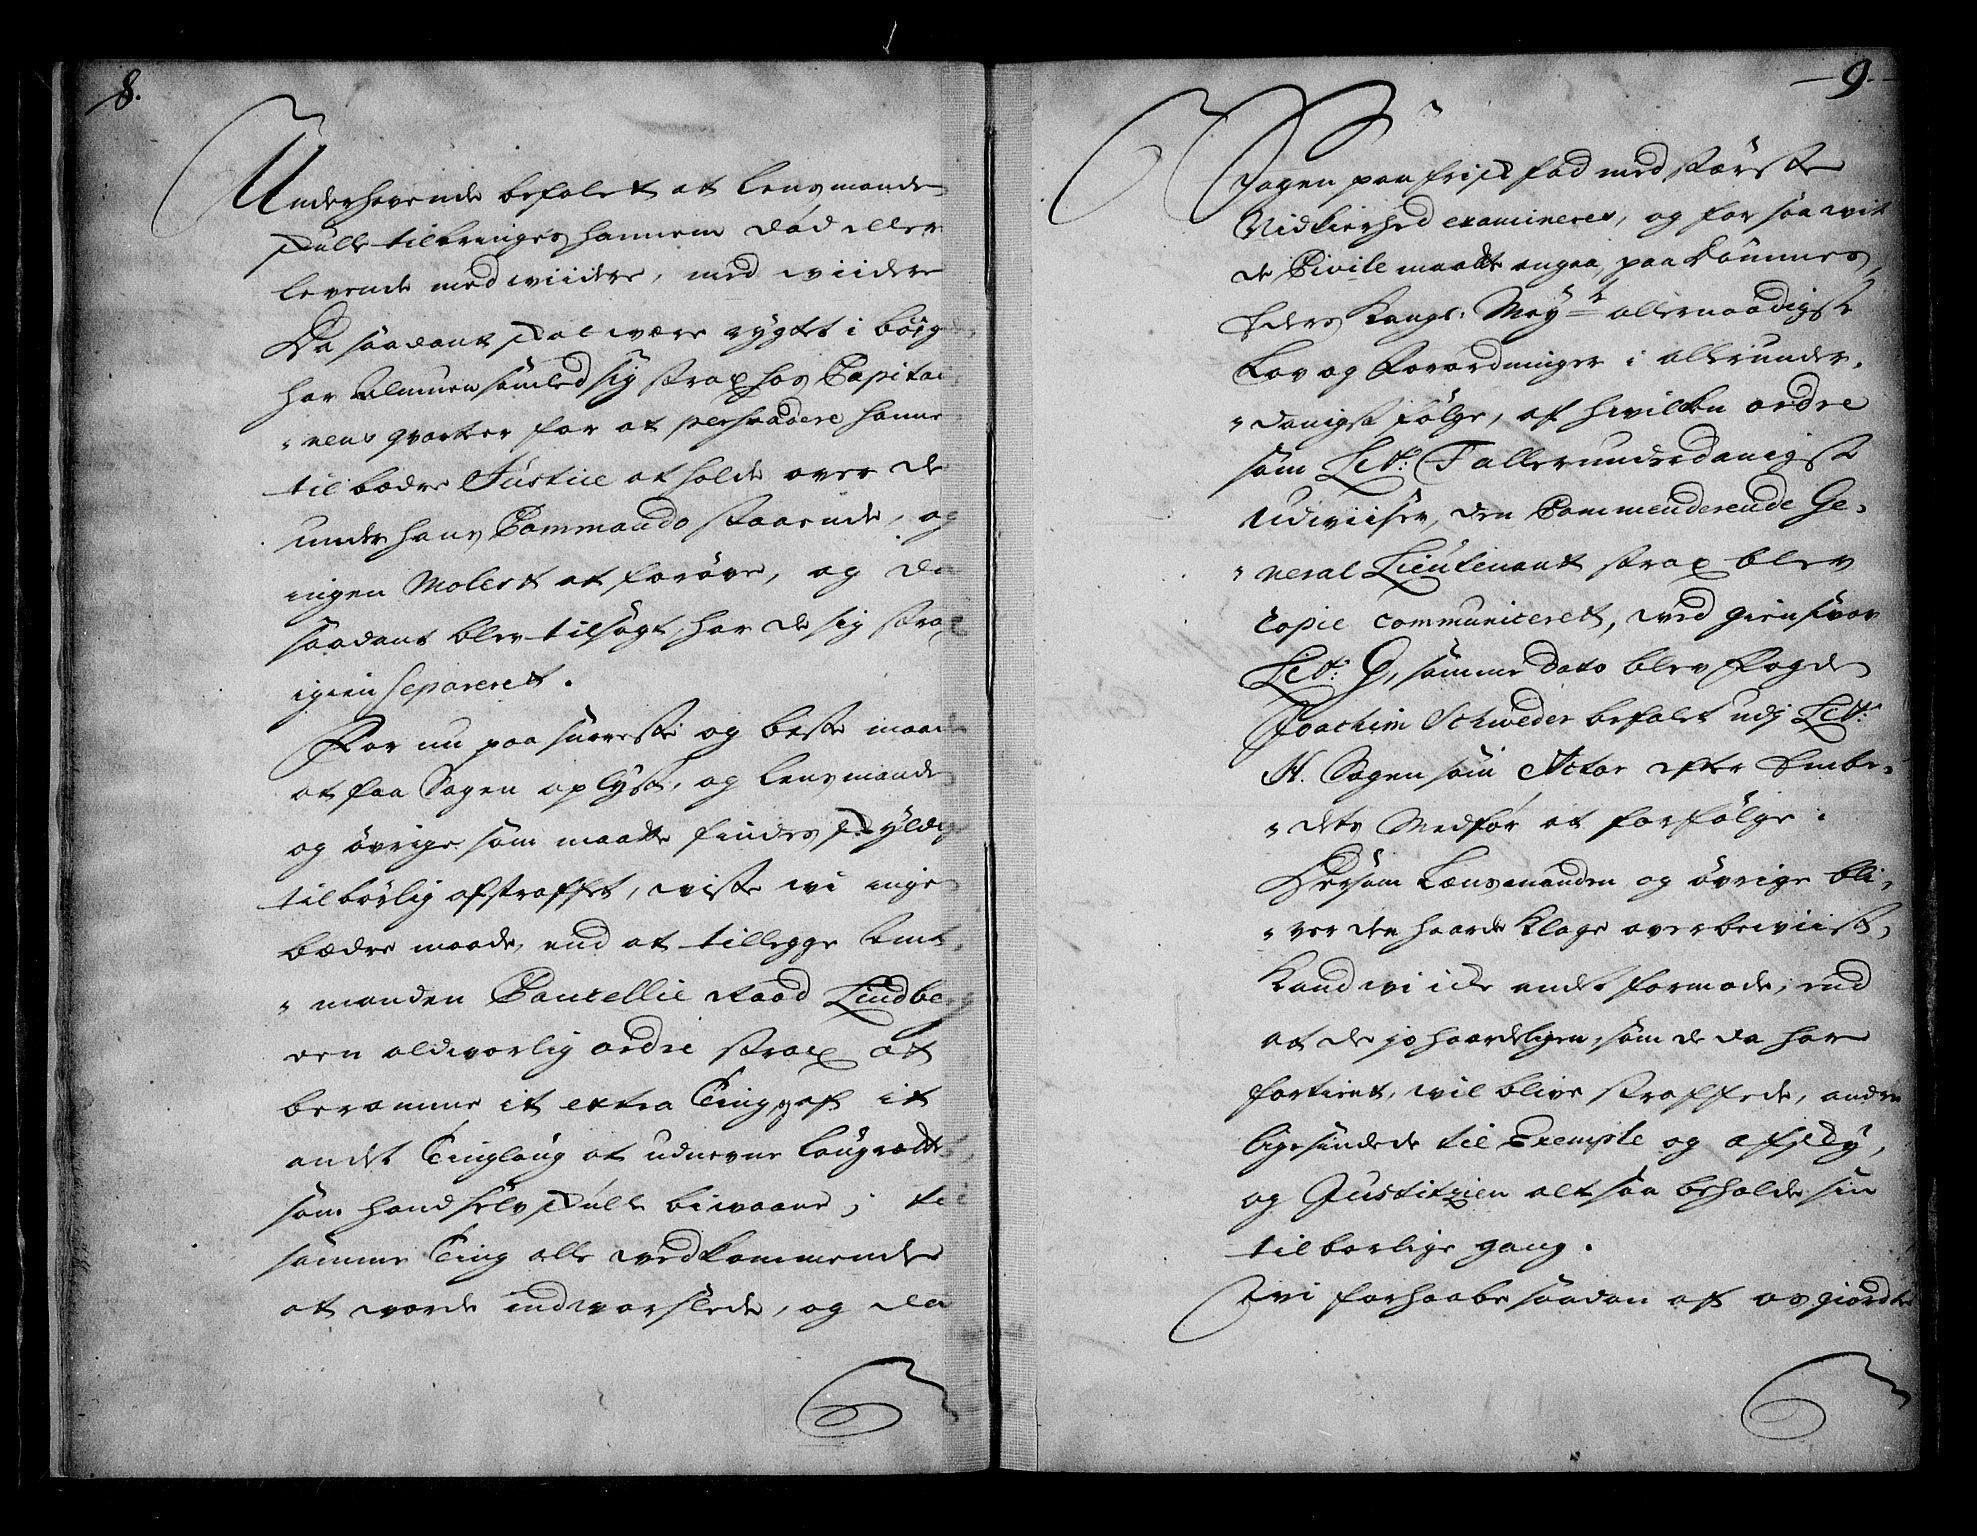 8.
Underhavende befalet at Lensmanden
skulle tilbringes hannem død eller
levende med wiidere, med wiidere
Da saadant skal være rygtet i böigden,
har Almuen samled sig strax hos Capitai-
nens qvarteer for at persvadere hannem
til bædre Justice at holde over de
under hans Commando staaende, og
ingen Molest at forøve, og da
saadant blev tilsagt har de sig strax
igien separeret.
For nu paa snareste og beste maade
at faa Sagen oplyst, og Lensmanden
og øvrige som maatte findes skyldig
tilbörlig afstraffet, viste wi ingen
bædre maade, end at tillegge Amt-
manden Cancellie Raad Lindberg
den aldvorlig ordre strax at
beramme it extra Ting, af it
andet Tinglaug at udnevne Laugrætte,
som hand selv skulle bivaane; til
samme Ting alle vedkommende
at vorde indvarslede, og da
9.
Sagen paa frisk fod med største
Vidtløftighed examineres, og for saa wit
de Civile maatte angaa, paa dömmes,
Eders Kongl: May:ts allernaadigste
Lov og Forordninger i allerunder-
danigst følge, af hvilken ordre
som Lit: F allerunderdanigst
Udviiser, den Commenderende Ge-
neral Lieutenant strax blev
Copie communiceret, ved giensvar
Lit: G, samme dato blev Fogden
Joachim Schweder befalet udj Lit:
H. Sagen som Actor efter Embe-
dets Medför at forfölge.
Dersom Lænsmanden og øvrige bli-
ver den haarde Klage overbeviist,
Kand wi icke andet formode, end
at de jo haardeligen, som de da har
fortient, wil blive straffede, andre
ligesindede til Exempel og afsky,
og Justitzien altsaa beholde sin
tilbørlige gang.
Wi forhaabe saadan af os giordte